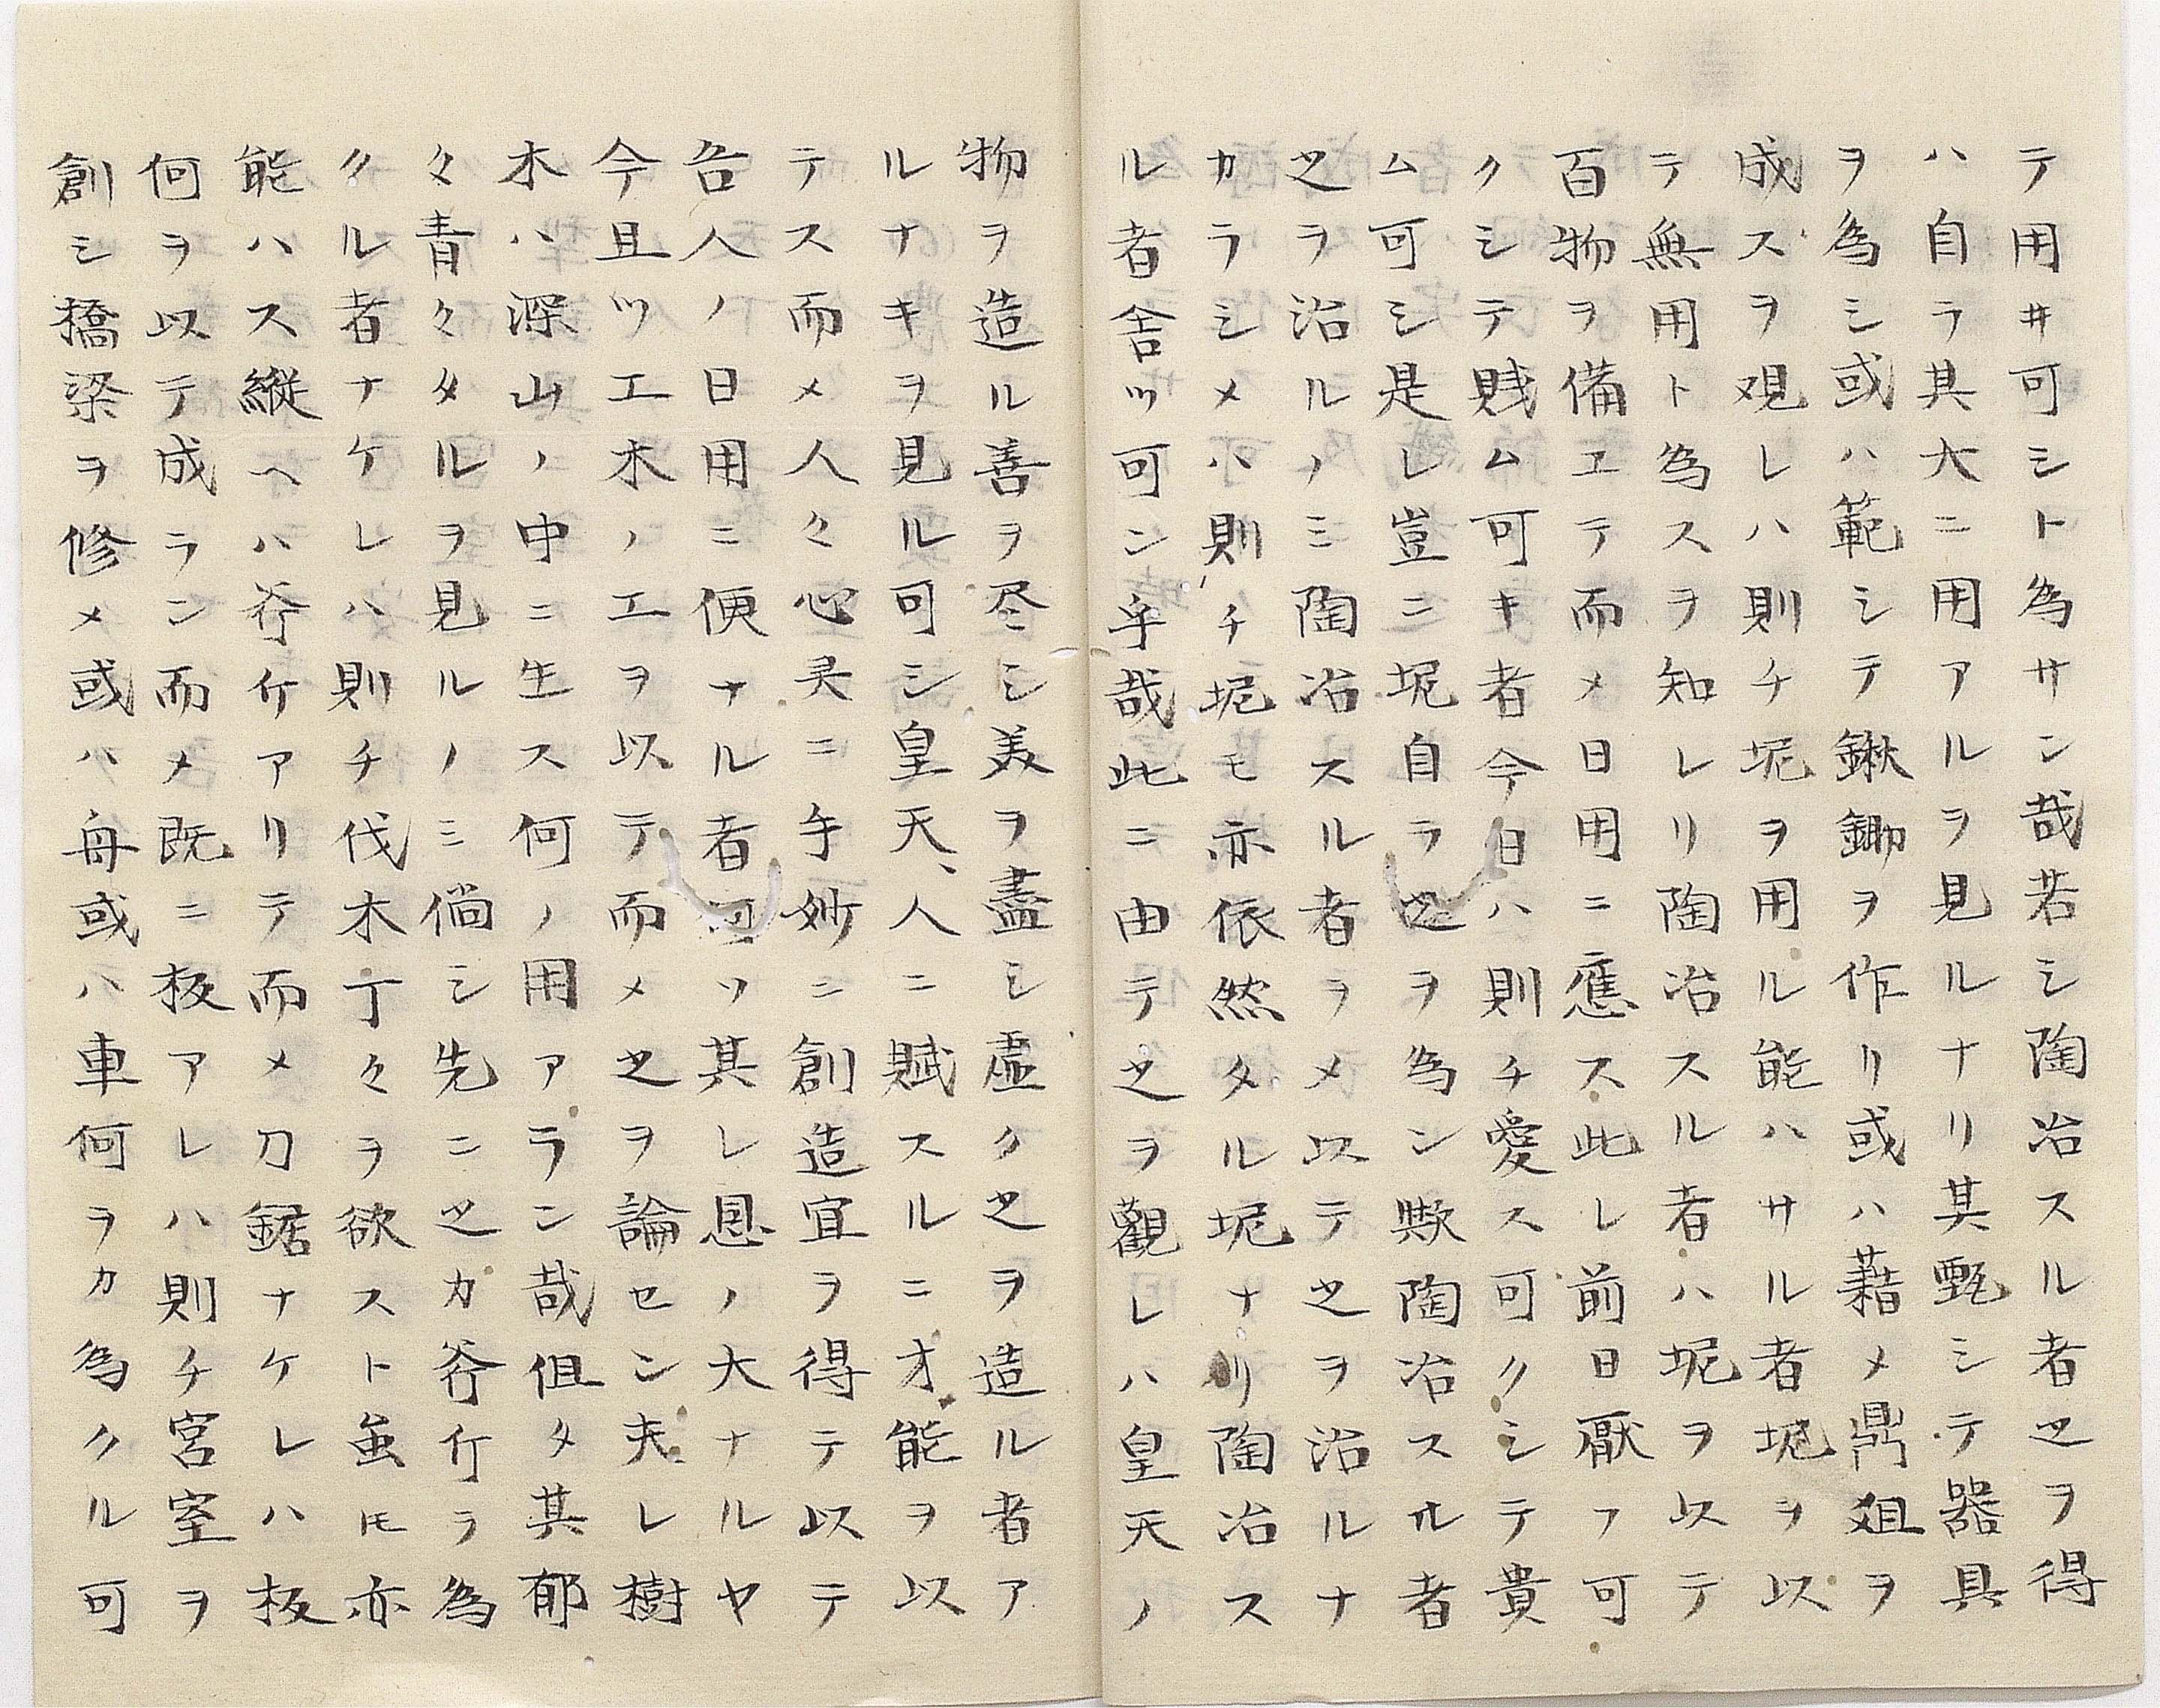 テ用ヰ可シト為サン哉若シ陶冶スル者之ヲ得
ハ自ラ其大ニ用アルヲ見ルナリ其甄シテ器具
ヲ為シ或ハ範シテ鍬鋤ヲ作リ或ハ藉メ鼎俎ヲ
成スヲ观レハ則チ坭ヲ用ル能ハサル者坭ヲ以
テ無用ト為スヲ知レリ陶冶スル者ハ坭ヲ以テ
百物ヲ備ヱテ而メ日用ニ應ス此レ前日厭フ可
クシテ賎ム可キ者今日ハ則チ愛ス可クシテ貴
ム可シ是レ豈ニ坭自ラ之ヲ為ン歟陶冶スル者
之ヲ治ルノミ陶冶スル者ヲメ以テ之ヲ治ルナ
カラシメハ則チ坭モ亦依然タル坭ナリ陶冶ス
ル者舎ツ可ン乎哉此ニ由テ之ヲ觀レハ皇天ノ
物ヲ造ル善ヲ尽シ美ヲ盡シ虚ク之ヲ造ル者ア
ルナキヲ見ル可シ皇天、人ニ賦スルニ才能ヲ以
テス而メ人々心灵ニ手妙ニ創造宜ヲ得テ以テ
吾人ノ日用ニ便ナル者何ソ其レ恩ノ大ナルヤ
今且ツ工木ノ工ヲ以テ而メ之ヲ論セン夫レ樹
木ハ深山ノ中ニ生ス何ノ用アラン哉但タ其郁
々青々タルヲ見ルノミ倘シ先ニ之カ斧斤ヲ為
クル者ナケレハ則チ伐木丁々ヲ欲スト虽モ亦
能ハス縦ヘハ斧斤アリテ而メ刀鋸ナケレハ板
何ヲ以テ成ラン而メ既ニ板アレハ則チ宮室ヲ
創シ橋梁ヲ修メ或ハ舟或ハ車何ヲカ為クル可